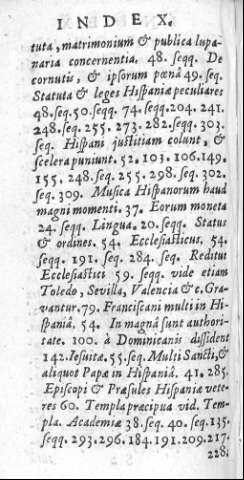 INDEX.
tuta, matrimonium & publica lupa-
naria concernentia. 48. seqq. De
cornutis, & ipsorum pœnâ 49. seq.
Statuta & leges Hispaniæ peculiares
48. seq. 50. seqq. 74. seqq. 204. 241.
248. seq. 255. 273. 282. seqq. 303.
seq. Hispani justitiam colunt, &
scelera puniunt. 52. 103. 106. 149.
155. 248. seq. 255. 298. seq. 302.
seq. 309. Musica Hispanorum haud
magni momenti. 37. Eorum moneta
24. seqq. Lingua. 20. seqq. Status
& ordines. 54. Ecclesiasticus. 54.
seqq. 191. seq. 284. seq. Reditus
Ecclesiastici 59. seqq. vide etiam
Toledo, Sevilla, Valencia & c. Gra-
vantur. 79. Franciscani multi in His-
paniâ. 54. In magnâ sunt authori-
tate. 100. à Dominicanis dissident
142. Iesuitæ. 55. seq. Multi Sancti, &
aliquot Papæ in Hispaniâ. 41. 285.
Episcopi & Præsules Hispaniæ vete-
res 60. Templa præcipua vid. Tem-
pla. Academiæ 38. seq. 40. seq. 135.
seqq. 293. 296. 184. 191. 209. 217.
228.